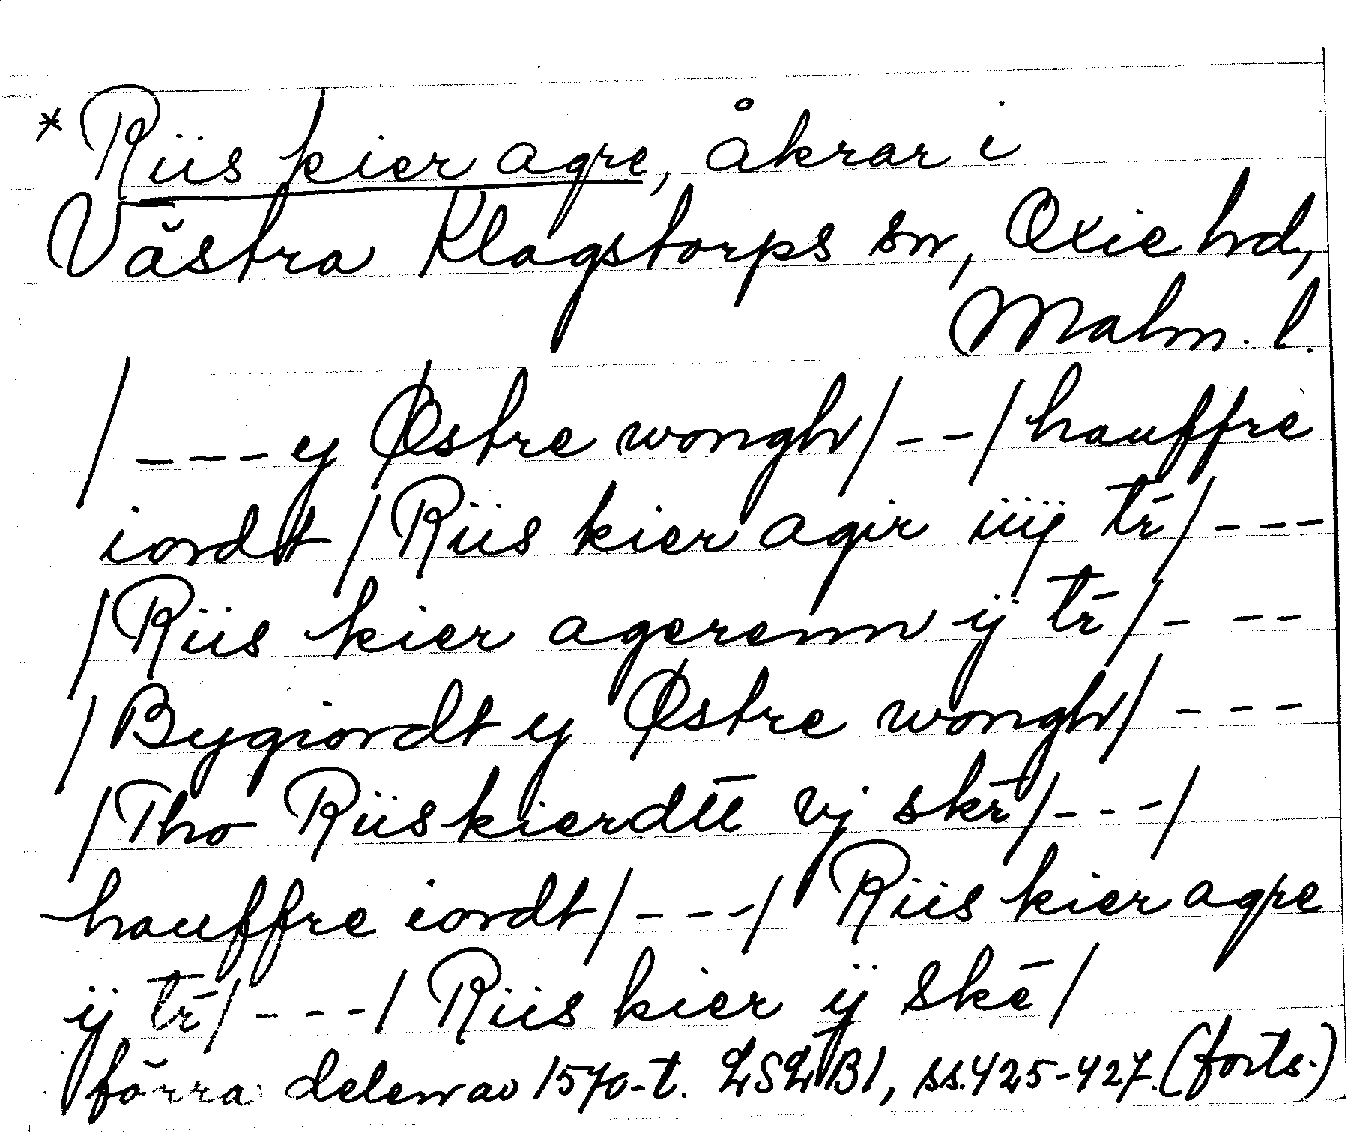 * Riis kier agre, åkrar i
Västra Klagstorps sn, Oxie hd,
Malm. l.
/ - - - y Østre wongh / - - / hauffre
iordt / Riis kier agir iiij tr̄ / - - -
/ Riis kier agerenn ij tr̄ / - - -
/ Bygiordt y Østre wongh / - - -
/ Tho Riiskierdtt vj skr̄ / - - - /
hauffre iordt / - - - / Riis kier agre
ij tr̄ / - - - / Riis kier ij skē /
förra delen av 1570-t. LSLB1, ss. 425-427. (forts.)